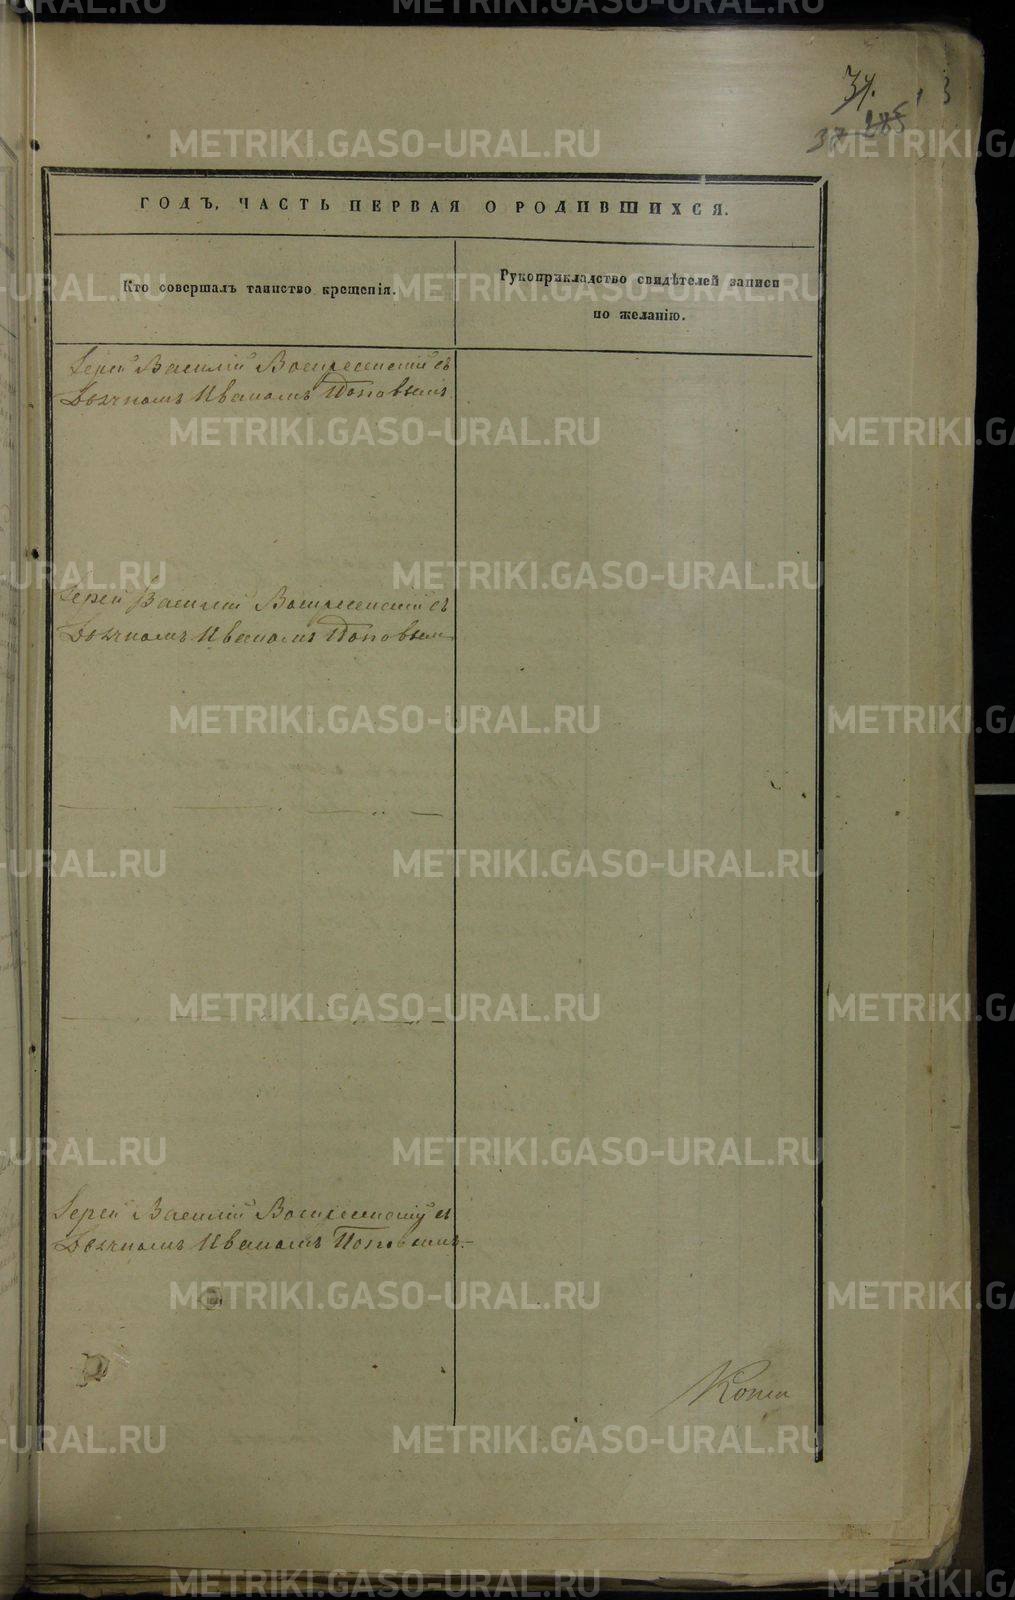 34.
37 285
3
ГОДЪ, ЧАСТЬ ПЕРВАЯ О РОДИВШИХСЯ.
Кто совершалъ таинство крещенія.
Рукоприкладство свидѣтелей записи
по желанію.
Іерей Василій Воскресенскій съ
Дьячкомъ Иваномъ Поповымъ
Іерей Василій Воскресенскій съ
Дьячкомъ Иваномъ Поповым
Іерей Василій Воскресенскій съ
Дьячкомъ Иваномъ Поповымъ.
METRIKI.GASO-URAL.RU